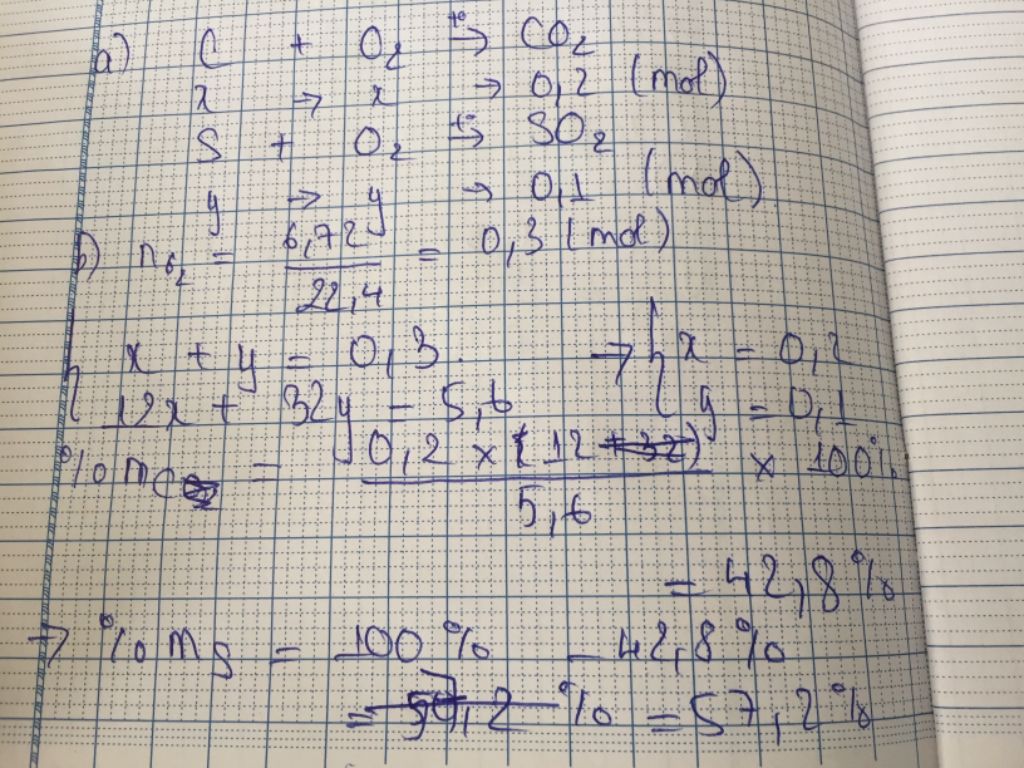 a) C + O₂ →(t°) CO₂
x → x → 0,2 (mol)
S + O₂ →(t°) SO₂
y → y → 0,1 (mol)
b) nO₂ = 6,72 / 22,4 = 0,3 (mol)
{ x + y = 0,3 → { x = 0,2
{ 12x + 32y = 5,6 { y = 0,1
%mC = 0,2 x (12 + 32) / 5,6 x 100%
= 42,8%
→ %mS = 100% - 42,8%
= 57,2%